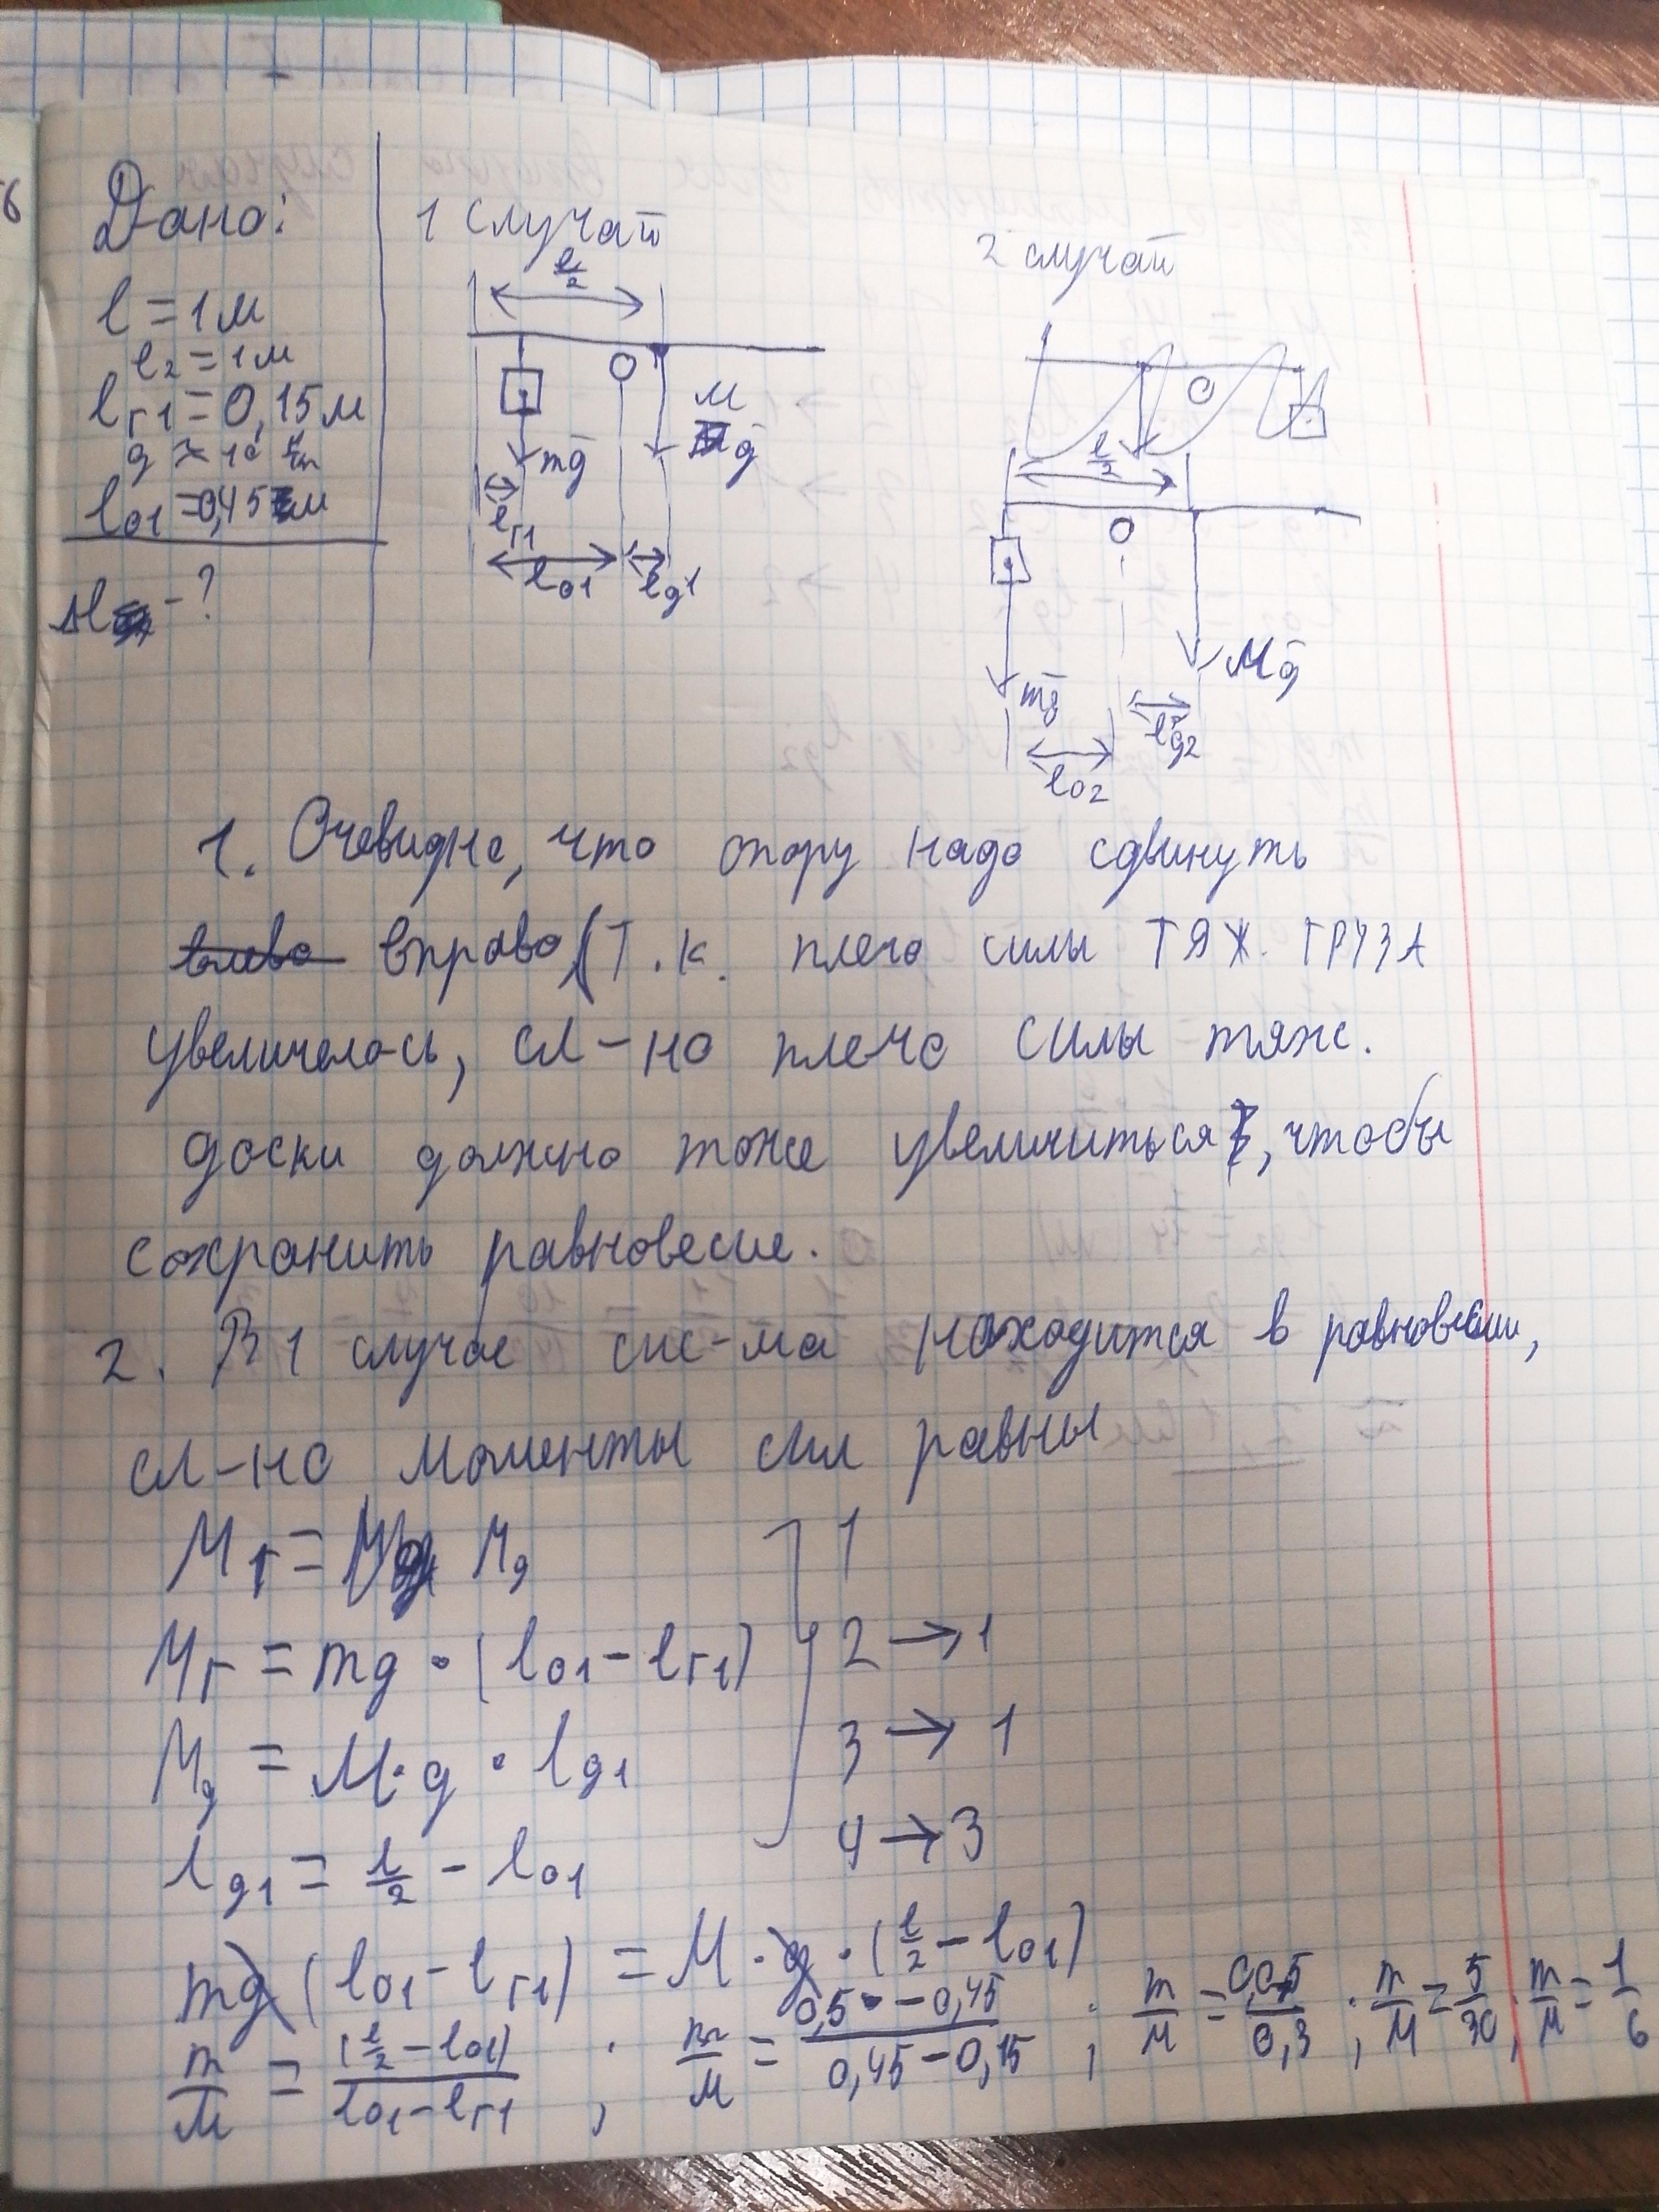 Дано:
l = 1 м
l₂ = 1 м
lг1 = 0,15 м
g ≈ 10
lо1 = 0,45 м
- ?
1 случай
l/2
O
mg
М
g
lг1
lо1
lд1
2 случай
O
l/2
O
mg
Mg
lд2
lо2
1. Очевидно, что опору надо сдвинуть
влево вправо (т.к. плечо силы ТЯЖ. ГРУЗА
увеличелось, сл-но плечо силы тяж.
доски должно тоже увеличиться, чтобы
сохранить равновесие.
2. В 1 случае сис-ма находится в равновесии,
сл-но моменты сил равны
Mг = Mд 1
Mг = mg · (lо1 - lг1) 2 → 1
Mд = M · g · lд1 3 → 1
lд1 = l/2 - lо1 4 → 3
mg (lо1 - lг1) = M · g · (l/2 - lо1)
m/M = (l/2 - lо1)/(lо1 - lг1) ; m/M = (0,5 - 0,45)/(0,45 - 0,15) ; m/M = 0,05/0,3 ; m/M = 5/30 ; m/M = 1/6